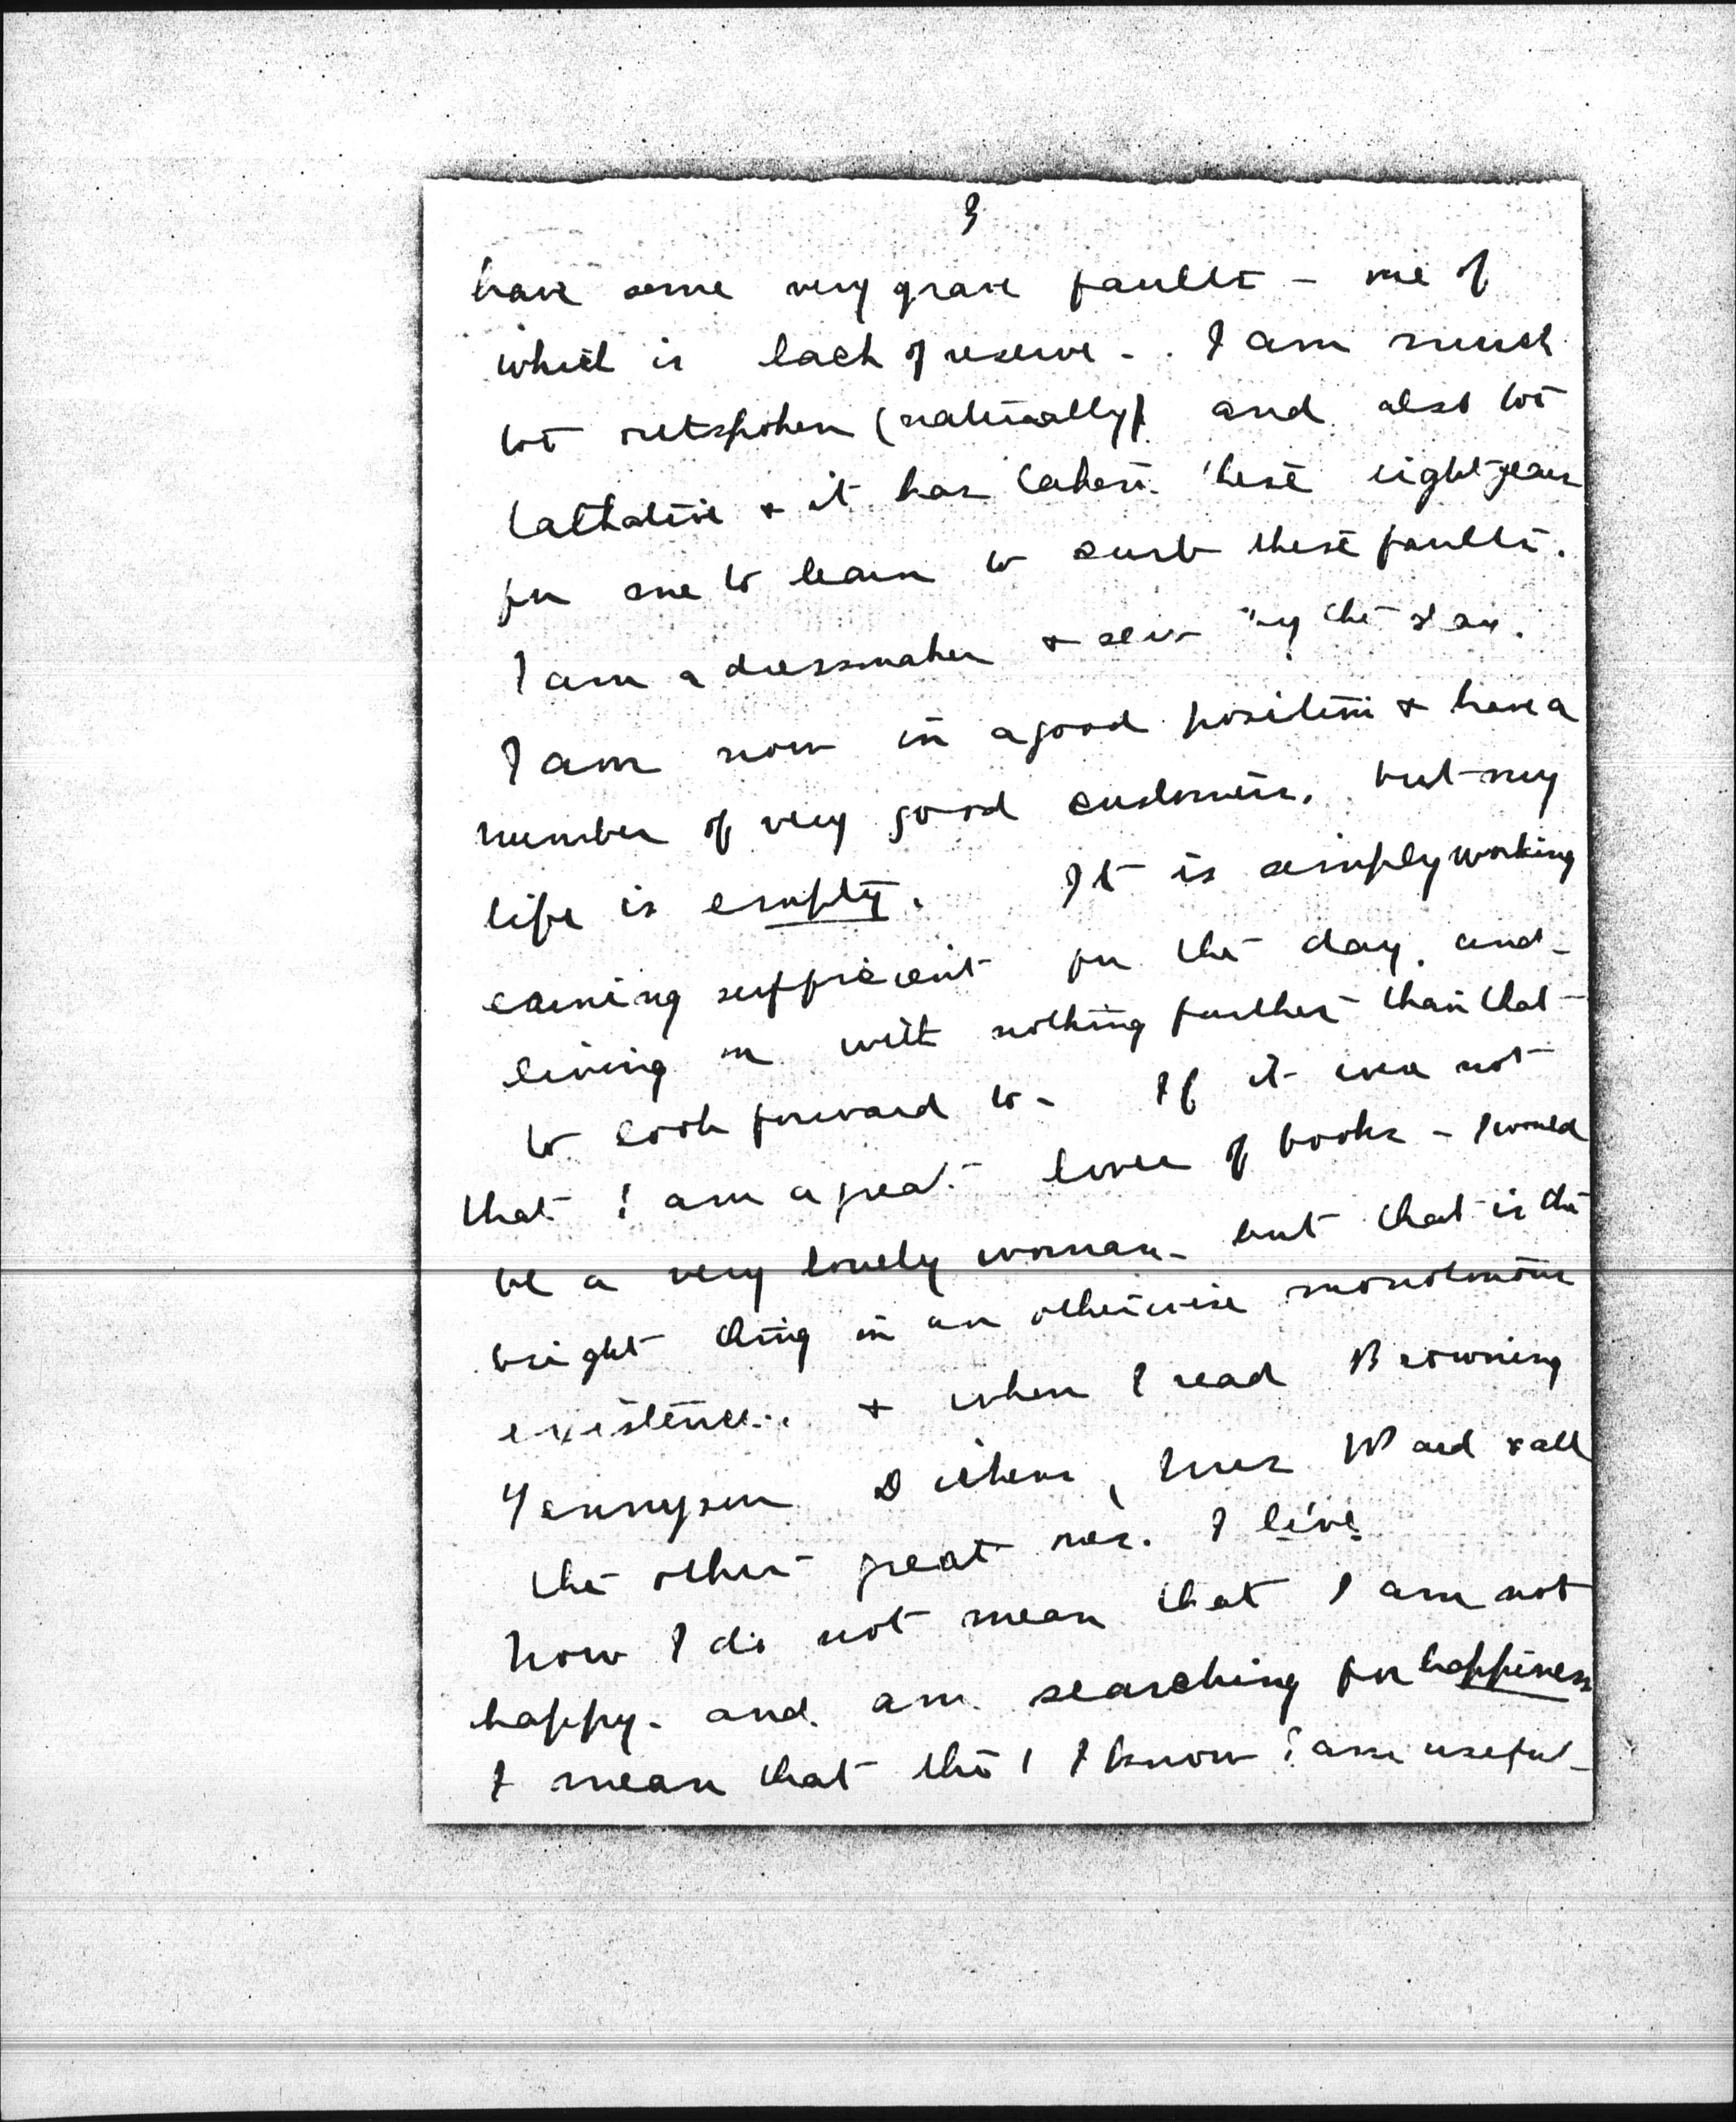 3
have some very grave faults - one of
which is lack of reserve - . I am much
too outspoken (naturally) and also too
talkative & it has taken these eight years
for me to learn to curb these faults.
I am a dressmaker & sew by the day.
I am now in a good position & have a
number of very good customers, but my
life is empty. It is simply working
earning sufficient for the day and
living on with nothing further than that
to look forward to - If it were not
that I am a great lover of books - I would
be a very lonely woman - but that is the
bright thing in an otherwise monotonous
existence .. & when I read Browning
Tennyson Dickens, Mrs Ward & all
the other great ones. I live
Now I do not mean that I am not
happy - and am searching for happiness
I mean that tho' I know I am useful -